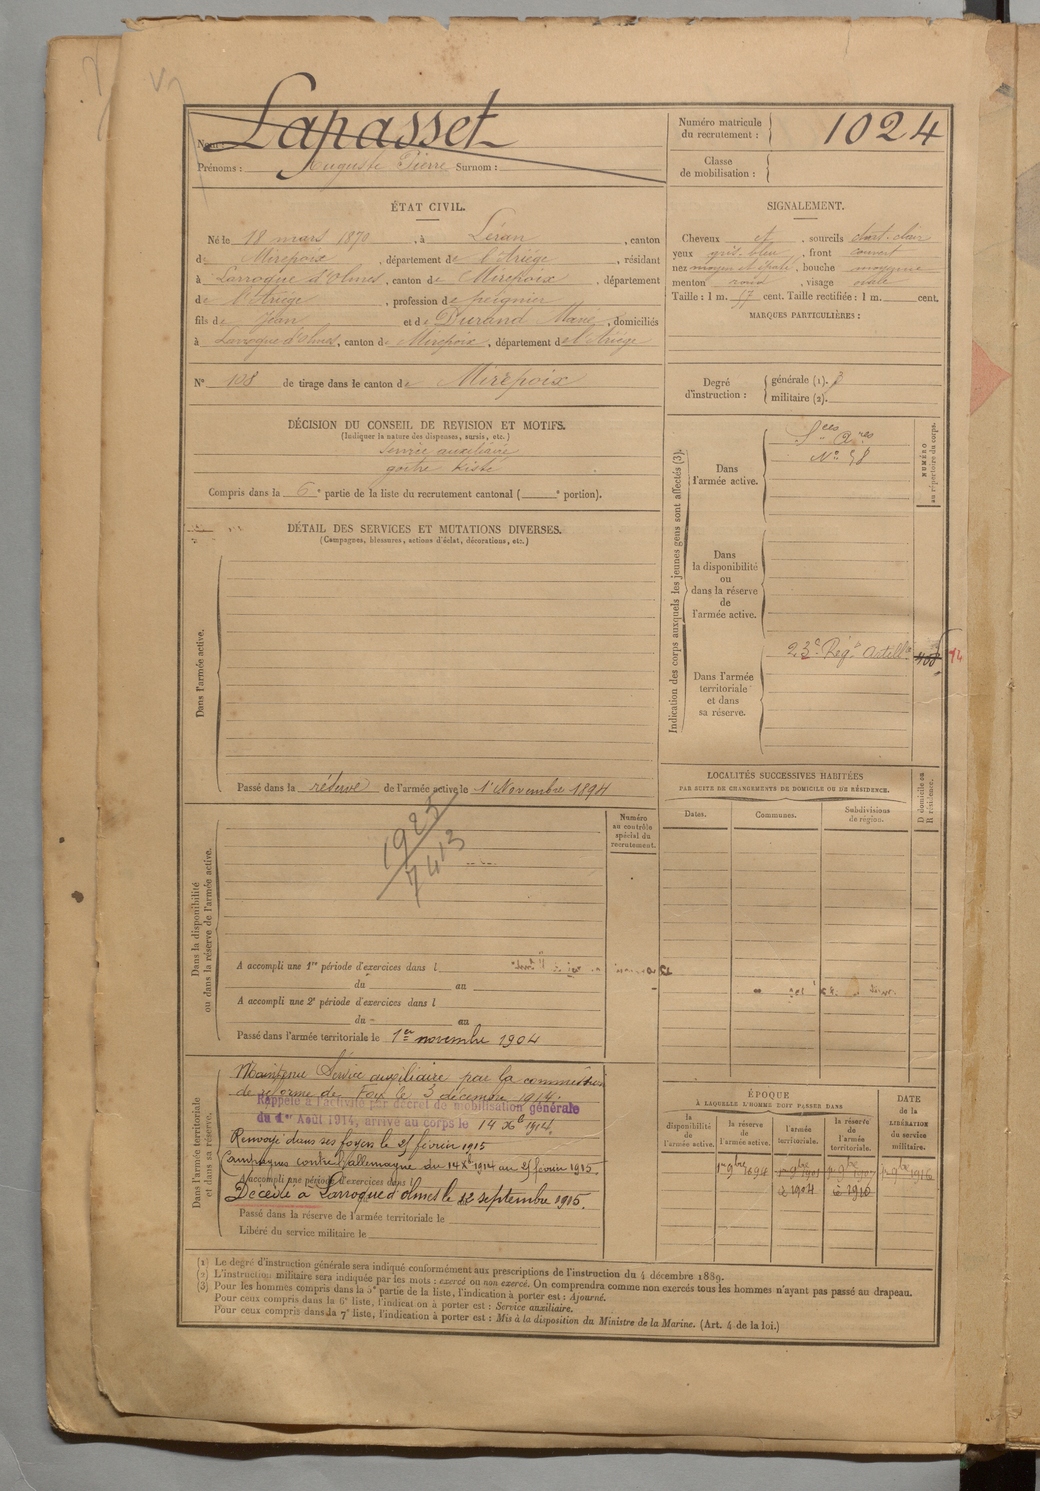 Lapasset
Nom :
Prénoms : Auguste Pierre Surnom :
Numéro matricule
du recrutement :
1024
Classe
de mobilisation :
ÉTAT CIVIL.
Né le 18 mars 1870, à Léran, canton
de Mirepoix, département de l'Ariège, résidant
à Larroque d'Olmes, canton de Mirepoix, département
de l'Ariège, profession de peignier
fils de Jean et de Durand Marie, domiciliés
à Larroque d'olmes, canton de Mirepoix, département de l'Ariège
N° 108 de tirage dans le canton de Mirepoix
SIGNALEMENT.
Cheveux et, sourcils chat. clair
yeux gris bleu, front couvert
nez moyen et épaté, bouche moyenne
menton rond, visage ovale
Taille : 1 m. 57 cent. Taille rectifiée : 1 m. cent.
MARQUES PARTICULIÈRES :
Degré
d'instruction :
générale (1).
militaire (2).
DÉCISION DU CONSEIL DE REVISION ET MOTIFS.
(Indiquer la nature des dispenses, sursis, etc.)
service auxiliaire
goître kisté
Compris dans la 6e partie de la liste du recrutement cantonal ( e portion).
DÉTAIL DES SERVICES ET MUTATIONS DIVERSES.
(Campagnes, blessures, actions d'éclat, décorations, etc.)
Dans l'armée active.
Passé dans la réserve de l'armée active le 1er Novembre 1894
Indication des corps auxquels les jeunes gens sont affectés (3).
Dans
l'armée active.
Sces Ares
N° 58
NUMÉRO
au répertoire du corps.
Dans
la disponibilité
ou
dans la réserve
de
l'armée active.
Dans l'armée
territoriale
et dans
sa réserve.
23e Régt Artillie
LOCALITÉS SUCCESSIVES HABITÉES
PAR SUITE DE CHANGEMENTS DE DOMICILE OU DE RÉSIDENCE.
Dates.
Communes.
Subdivisions
de région.
D domicile ou
R résidence.
Dans la disponibilité
ou dans la réserve de l'armée active.
1925
7413
Numéro
au contrôle
spécial du
recrutement.
A accompli une 1re période d'exercices dans l
du au
A accompli une 2e période d'exercices dans l
du au
Passé dans l'armée territoriale le 1er novembre 1904
Dans l'armée territoriale
et dans sa réserve.
Maintenu Service auxiliaire par la commission
de réforme de Foix le 3 décembre 1914.
Rappelé à l'activité par décret de mobilisation générale
du 1er Août 1914, arrivé au corps le 14 Xbre 1914.
Renvoyé dans ses foyers le 25 février 1915
Campagnes contre l'allemagne du 14 Xbre 1914 au 25 février 1915.
A accompli une période d'exercices dans l
Décédé à Larroque d'olmes le 12 septembre 1915.
Passé dans la réserve de l'armée territoriale le
Libéré du service militaire le
ÉPOQUE
À LAQUELLE L'HOMME DOIT PASSER DANS
la
disponibilité
de
l'armée active.
la réserve
de
l'armée active.
l'armée
territoriale.
la réserve
de
l'armée
territoriale.
DATE
de la
LIBÉRATION
du service
militaire.
1er 9bre 1894
1er 9bre
1er 9bre
1er 9bre 1916
d° 1904
d° 1910
(1) Le degré d'instruction générale sera indiqué conformément aux prescriptions de l'instruction du 4 décembre 1889.
(2) L'instruction militaire sera indiquée par les mots : exercé ou non exercé. On comprendra comme non exercés tous les hommes n'ayant pas passé au drapeau.
(3) Pour les hommes compris dans la 5e partie de la liste, l'indication à porter est : Ajourné.
Pour ceux compris dans la 6e liste, l'indication à porter est : Service auxiliaire.
Pour ceux compris dans la 7e liste, l'indication à porter est : Mis à la disposition du Ministre de la Marine. (Art. 4 de la loi.)